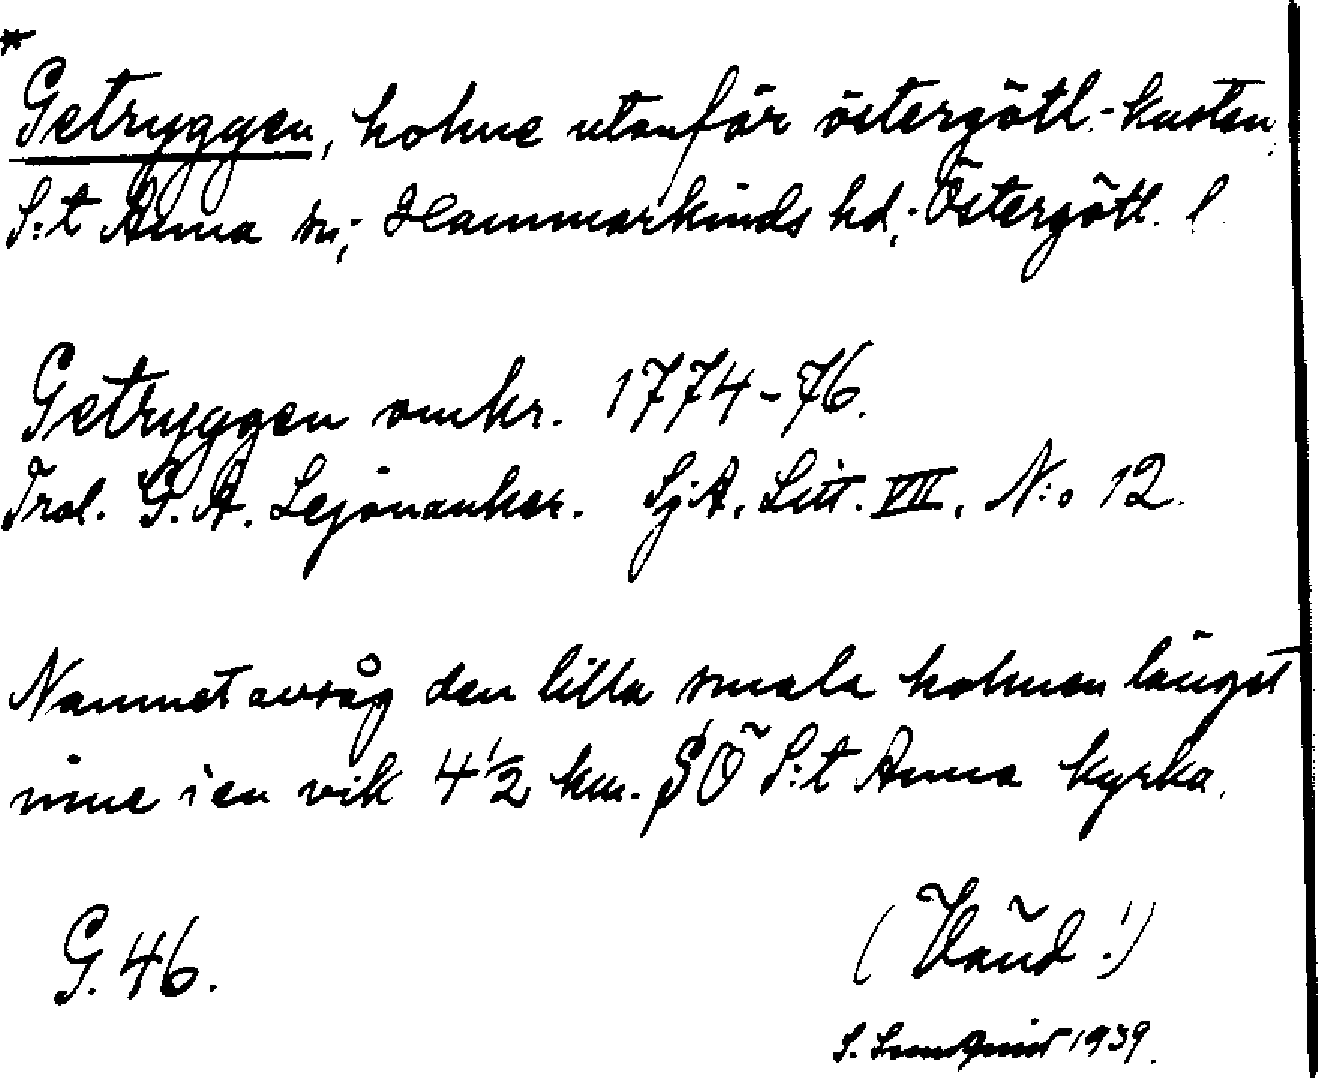 *
Getryggen, holme utanför östergötl.-kusten,
S:t Anna sn; Hammarkinds hd, Östergötl. l
Getryggen omkr. 1774-76.
Trol. G. A. Lejonanker. SjA. Litt. VII, N:o 12.
Namnet avsåg den lilla smala holmen längst
inne i en vik 4 1/2 km. SÖ S:t Anna kyrka.
G. 46.
(Vänd!)
S. 1939.